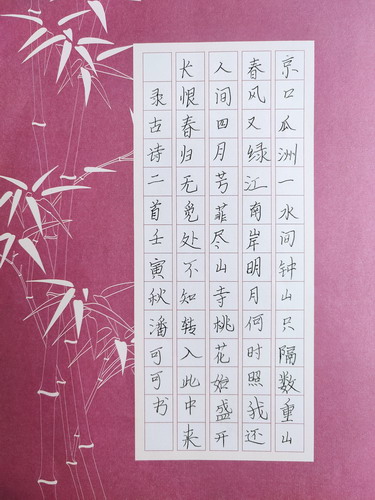 京口瓜洲一水间钟山只隔数重山
春风又绿江南岸明月何时照我还
人间四月芳菲尽山寺桃花始盛开
长恨春归无觅处不知转入此中来
录古诗二首壬寅秋潘可可书